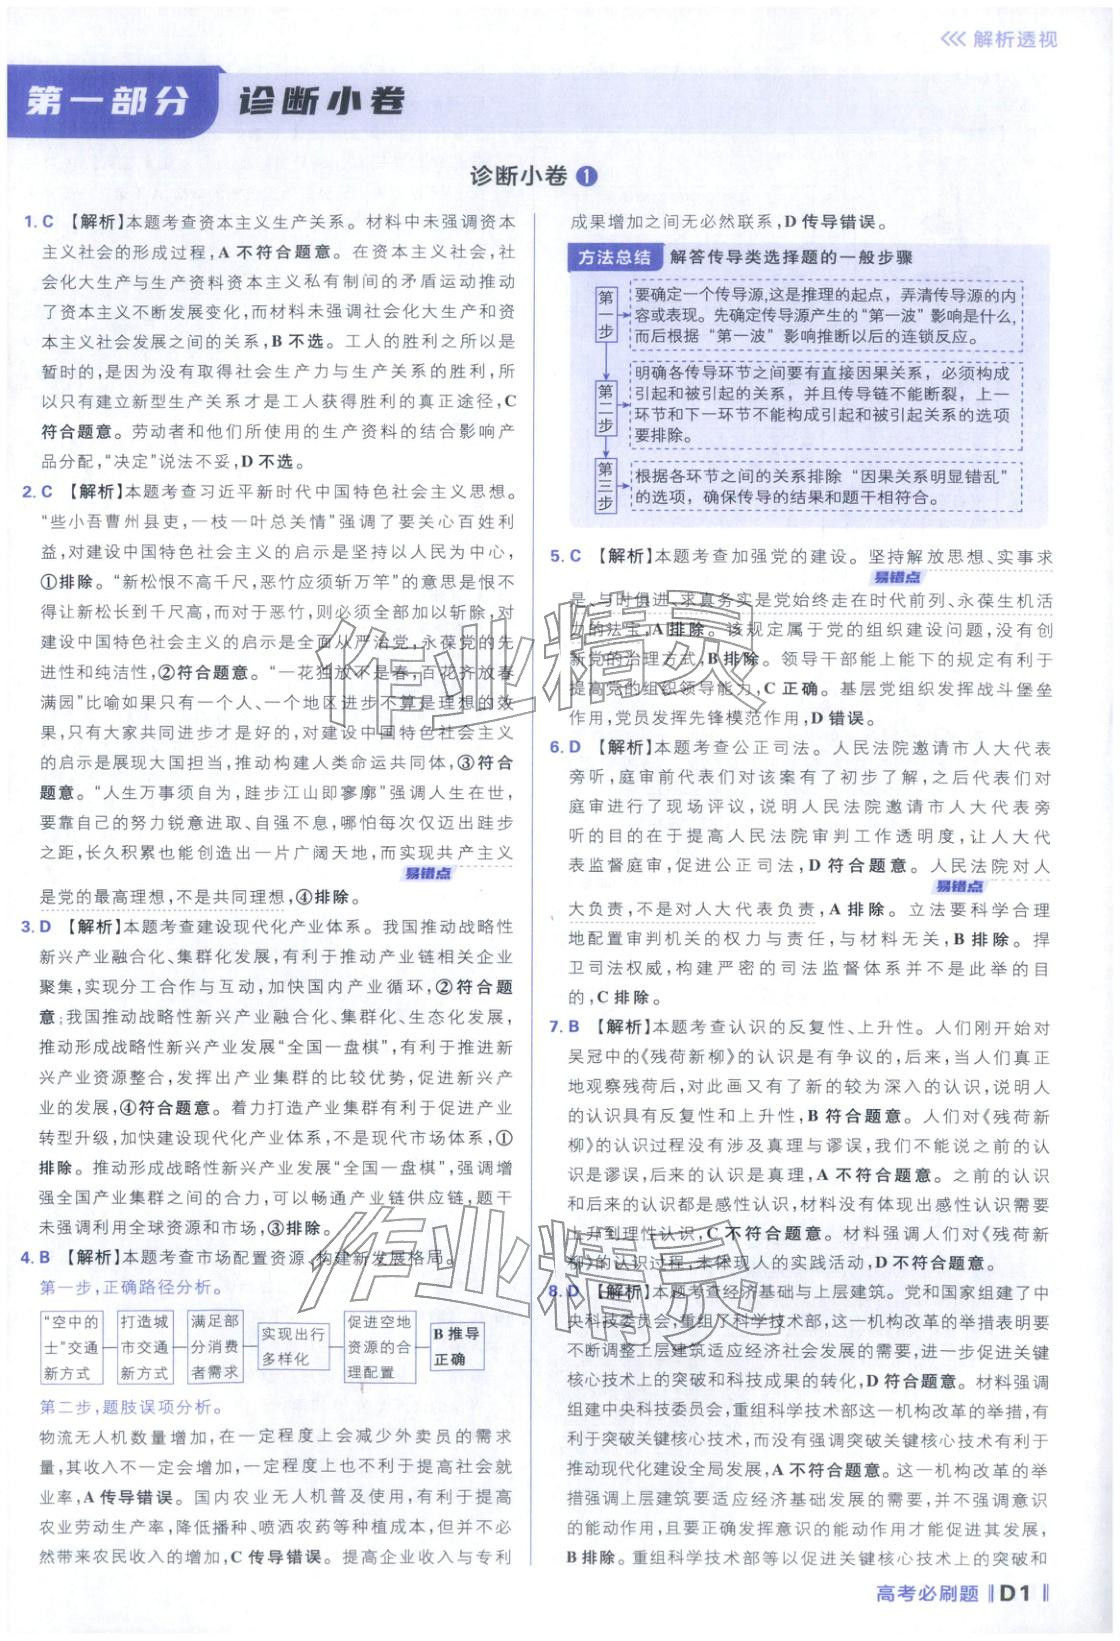 解析透视
第一部分 诊断小卷
诊断小卷 1
1. C 【解析】本题考查资本主义生产关系。材料中未强调资本
主义社会的形成过程,A 不符合题意。在资本主义社会,社
会化大生产与生产资料资本主义私有制间的矛盾运动推动
了资本主义不断发展变化,而材料未强调社会化大生产和资
本主义社会发展之间的关系,B 不选。工人的胜利之所以是
暂时的,是因为没有取得社会生产力与生产关系的胜利,所
以只有建立新型生产关系才是工人获得胜利的真正途径,C
符合题意。劳动者和他们所使用的生产资料的结合影响产
品分配,“决定”说法不妥,D 不选。
2. C 【解析】本题考查习近平新时代中国特色社会主义思想。
“些小吾曹州县吏,一枝一叶总关情”强调了要关心百姓利
益,对建设中国特色社会主义的启示是坚持以人民为中心,
①排除。“新松恨不高千尺,恶竹应须斩万竿”的意思是恨不
得让新松长到千尺高,而对于恶竹,则必须全部加以斩除,对
建设中国特色社会主义的启示是全面从严治党,永葆党的先
进性和纯洁性,②符合题意。“一花独放不是春,百花齐放春
满园”比喻如果只有一个人、一个地区进步不算是理想的效
果,只有大家共同进步才是好的,对建设中国特色社会主义
的启示是展现大国担当,推动构建人类命运共同体,③符合
题意。“人生万事须自为,跬步江山即寥廓”强调人生在世,
要靠自己的努力锐意进取、自强不息,哪怕每次仅迈出跬步
之距,长久积累也能创造出一片广阔天地,而实现共产主义
易错点
是党的最高理想,不是共同理想,④排除。
3. D 【解析】本题考查建设现代化产业体系。我国推动战略性
新兴产业融合化、集群化发展,有利于推动产业链相关企业
聚集,实现分工合作与互动,加快国内产业循环,②符合题
意;我国推动战略性新兴产业融合化、集群化、生态化发展,
推动形成战略性新兴产业发展“全国一盘棋”,有利于推进新
兴产业资源整合,发挥出产业集群的比较优势,促进新兴产
业的发展,④符合题意。着力打造产业集群有利于促进产业
转型升级,加快建设现代化产业体系,不是现代市场体系,①
排除。推动形成战略性新兴产业发展“全国一盘棋”,强调增
强全国产业集群之间的合力,可以畅通产业链供应链,题干
未强调利用全球资源和市场,③排除。
4. B 【解析】本题考查市场配置资源、构建新发展格局。
第一步,正确路径分析。
“空中的士”交通新方式
打造城市交通新方式
满足部分消费者需求
实现出行多样化
促进空地资源的合理配置
B 推导正确
第二步,题肢误项分析。
物流无人机数量增加,在一定程度上会减少外卖员的需求
量,其收入不一定会增加,一定程度上也不利于提高社会就
业率,A 传导错误。国内农业无人机普及使用,有利于提高
农业劳动生产率,降低播种、喷洒农药等种植成本,但并不必
然带来农民收入的增加,C 传导错误。提高企业收入与专利
成果增加之间无必然联系,D 传导错误。
方法总结 解答传导类选择题的一般步骤
第一步
要确定一个传导源,这是推理的起点，弄清传导源的内
容或表现。先确定传导源产生的“第一波”影响是什么,
而后根据“第一波”影响推断以后的连锁反应。
第二步
明确各传导环节之间要有直接因果关系，必须构成
引起和被引起的关系，并且传导链不能断裂，上一
环节和下一环节不能构成引起和被引起关系的选项
要排除。
第三步
根据各环节之间的关系排除“因果关系明显错乱”
的选项，确保传导的结果和题干相符合。
5. C 【解析】本题考查加强党的建设。坚持解放思想、实事求
易错点
是、与时俱进、求真务实是党始终走在时代前列、永葆生机活
力的法宝,A 排除。该规定属于党的组织建设问题,没有创
新党的治理方式,B 排除。领导干部能上能下的规定有利于
提高党的组织领导能力,C 正确。基层党组织发挥战斗堡垒
作用,党员发挥先锋模范作用,D 错误。
6. D 【解析】本题考查公正司法。人民法院邀请市人大代表
旁听,庭审前代表们对该案有了初步了解,之后代表们对
庭审进行了现场评议,说明人民法院邀请市人大代表旁
听的目的在于提高人民法院审判工作透明度,让人大代
表监督庭审,促进公正司法,D 符合题意。人民法院对人
易错点
大负责,不是对人大代表负责,A 排除。立法要科学合理
地配置审判机关的权力与责任,与材料无关,B 排除。捍
卫司法权威,构建严密的司法监督体系并不是此举的目
的,C 排除。
7. B 【解析】本题考查认识的反复性、上升性。人们刚开始对
吴冠中的《残荷新柳》的认识是有争议的,后来,当人们真正
地观察残荷后,对此画又有了新的较为深入的认识,说明人
的认识具有反复性和上升性,B 符合题意。人们对《残荷新
柳》的认识过程没有涉及真理与谬误,我们不能说之前的认
识是谬误,后来的认识是真理,A 不符合题意。之前的认识
和后来的认识都是感性认识,材料没有体现出感性认识需要
上升到理性认识,C 不符合题意。材料强调人们对《残荷新
柳》的认识过程,未体现人的实践活动,D 不符合题意。
8. D 【解析】本题考查经济基础与上层建筑。党和国家组建了中
央科技委员会,重组了科学技术部,这一机构改革的举措表明要
不断调整上层建筑适应经济社会发展的需要,进一步促进关键
核心技术上的突破和科技成果的转化,D 符合题意。材料强调
组建中央科技委员会,重组科学技术部这一机构改革的举措,有
利于突破关键核心技术,而没有强调突破关键核心技术有利于
推动现代化建设全局发展,A 不符合题意。这一机构改革的举
措强调上层建筑要适应经济基础发展的需要,并不强调意识
的能动作用,且要正确发挥意识的能动作用才能促进其发展,
B 排除。重组科学技术部等以促进关键核心技术上的突破和
作业精灵
作业精灵
高考必刷题 D1